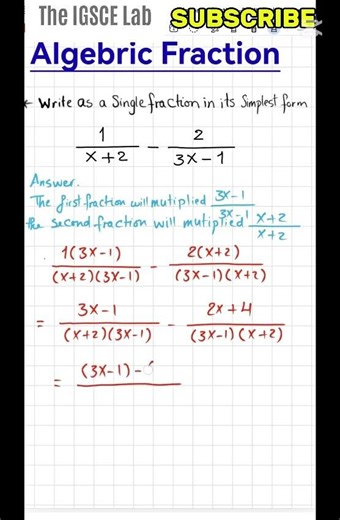 The IGSCE Lab SUBSCRIBE
Algebric Fraction
← Write as a Single fraction in its Simplest form
1/(x+2) - 2/(3x-1)
Answer.
The first fraction will mutiplied (3x-1)/(3x-1)
the second fraction will mutiplied (x+2)/(x+2)
1(3x-1)/((x+2)(3x-1)) - 2(x+2)/((3x-1)(x+2))
= (3x-1)/((x+2)(3x-1)) - (2x+4)/((3x-1)(x+2))
= (3x-1) -